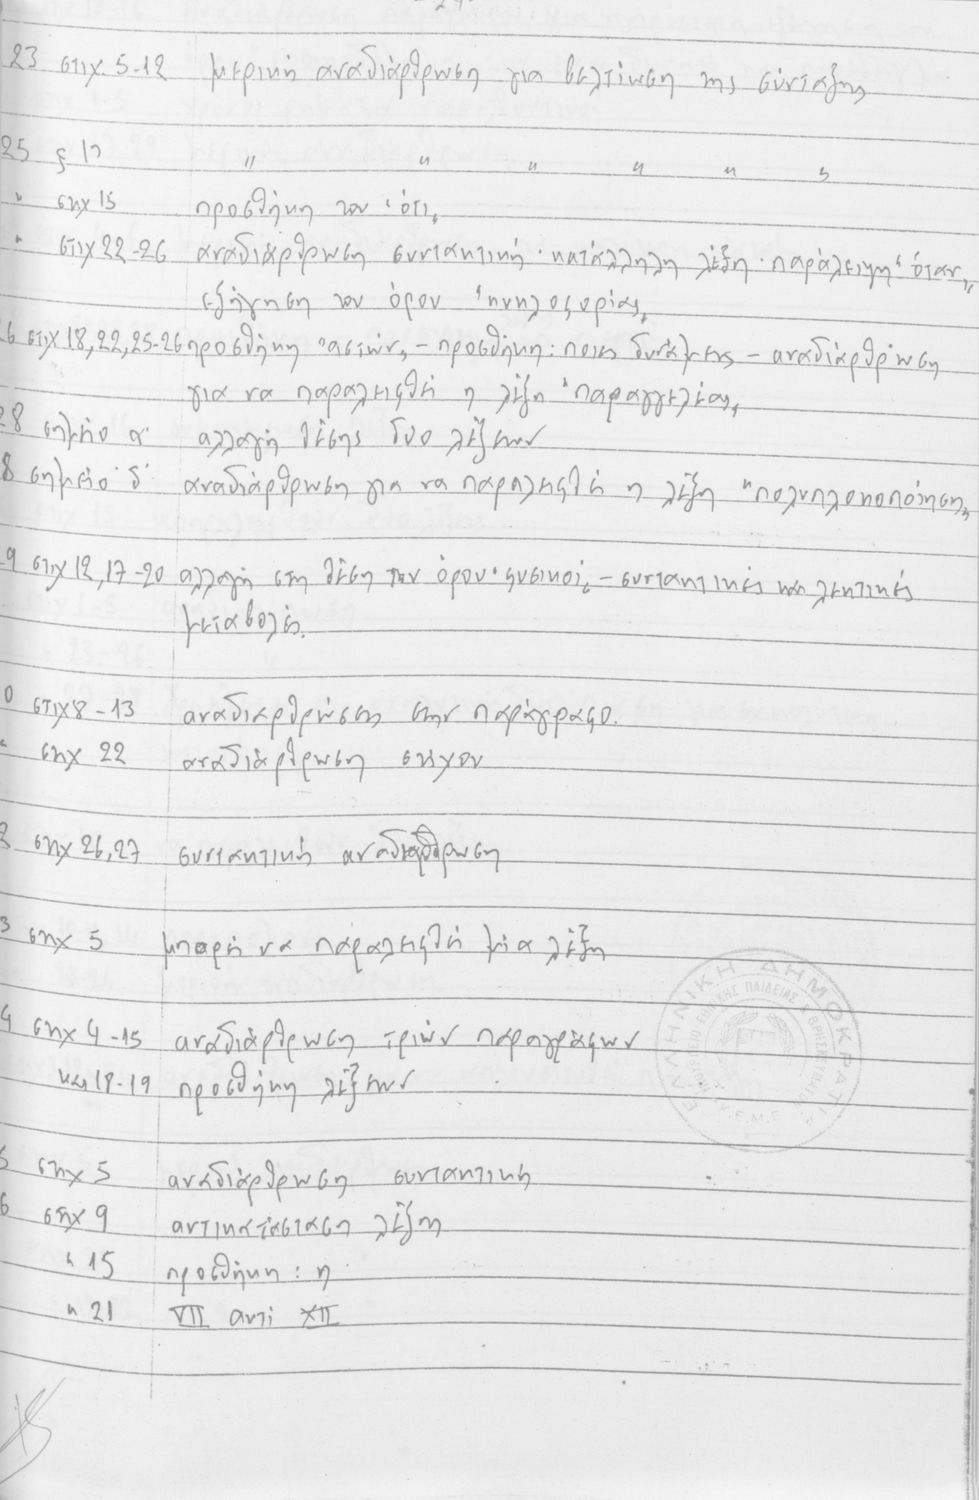 - 2 -
23 στιχ. 5-12 μερική αναδιάρθρωση για βελτίωση της σύνταξης
25 § 1η " " " " " "
" στιχ 15 προσθήκη του "ότι"
" στιχ 22-26 αναδιάρθρωση συντακτική · κατάλληλη λέξη · παράλειψη "όταν"
εξήγηση του όρου "κυκλοφορίας"
6 στιχ 18,22,25-26 προσθήκη "αστών" – προσθήκη: ποιες δυνάμεις – αναδιάρθρωση
για να παραλειφθεί η λέξη "παραγγελίας"
28 σημείο α' αλλαγή θέσης δύο λέξεων
8 σημείο δ' αναδιάρθρωση για να παραλειφθεί η λέξη "πολυπλοκοποίηση"
9 στιχ 12, 17-20 αλλαγή στη θέση του όρου "φυσικοί" – συντακτικές και λεκτικές
μεταβολές.
0 στιχ 8-13 αναδιαρθρώσεις στην παράγραφο.
" στιχ 22 αναδιάρθρωση στίχου
2 στιχ 26,27 συντακτική αναδιάρθρωση
3 στιχ 5 μπορεί να παραλειφθεί μία λέξη
4 στιχ 4-15 αναδιάρθρωση τριών παραγράφων
και 18-19 προσθήκη λέξεων
5 στιχ 5 αναδιάρθρωση συντακτική
6 στιχ 9 αντικατάσταση λέξης
" 15 προσθήκη: η
" 21 VII αντί XII
ΕΛΛΗΝΙΚΗ ΔΗΜΟΚΡΑΤΙ
ΥΠΟΥΡΓΕΙΟ ΕΘΝΙΚΗΣ ΠΑΙΔΕΙΑΣ & ΘΡΗΣΚΕΥΜΑΤΩΝ
Κ.Ε.Μ.Ε